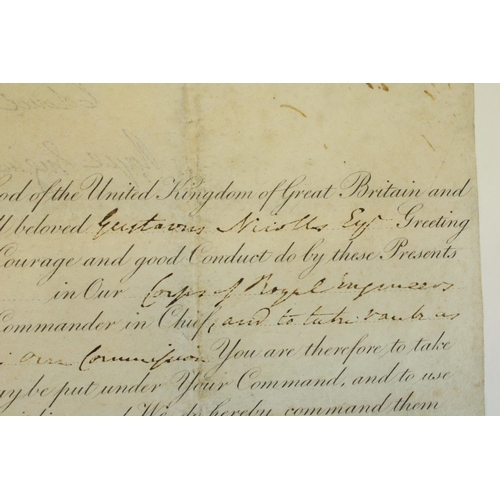 Colonel
Royal
God of the United Kingdom of Great Britain and
ll beloved Gustavus Nicolls Esqr Greeting
Courage and good Conduct do by these Presents
in Our Corps of Royal Engineers
Commander in Chief, and to take Rank as
our Commission You are therefore to take
may be put under Your Command, and to use
We do hereby command them